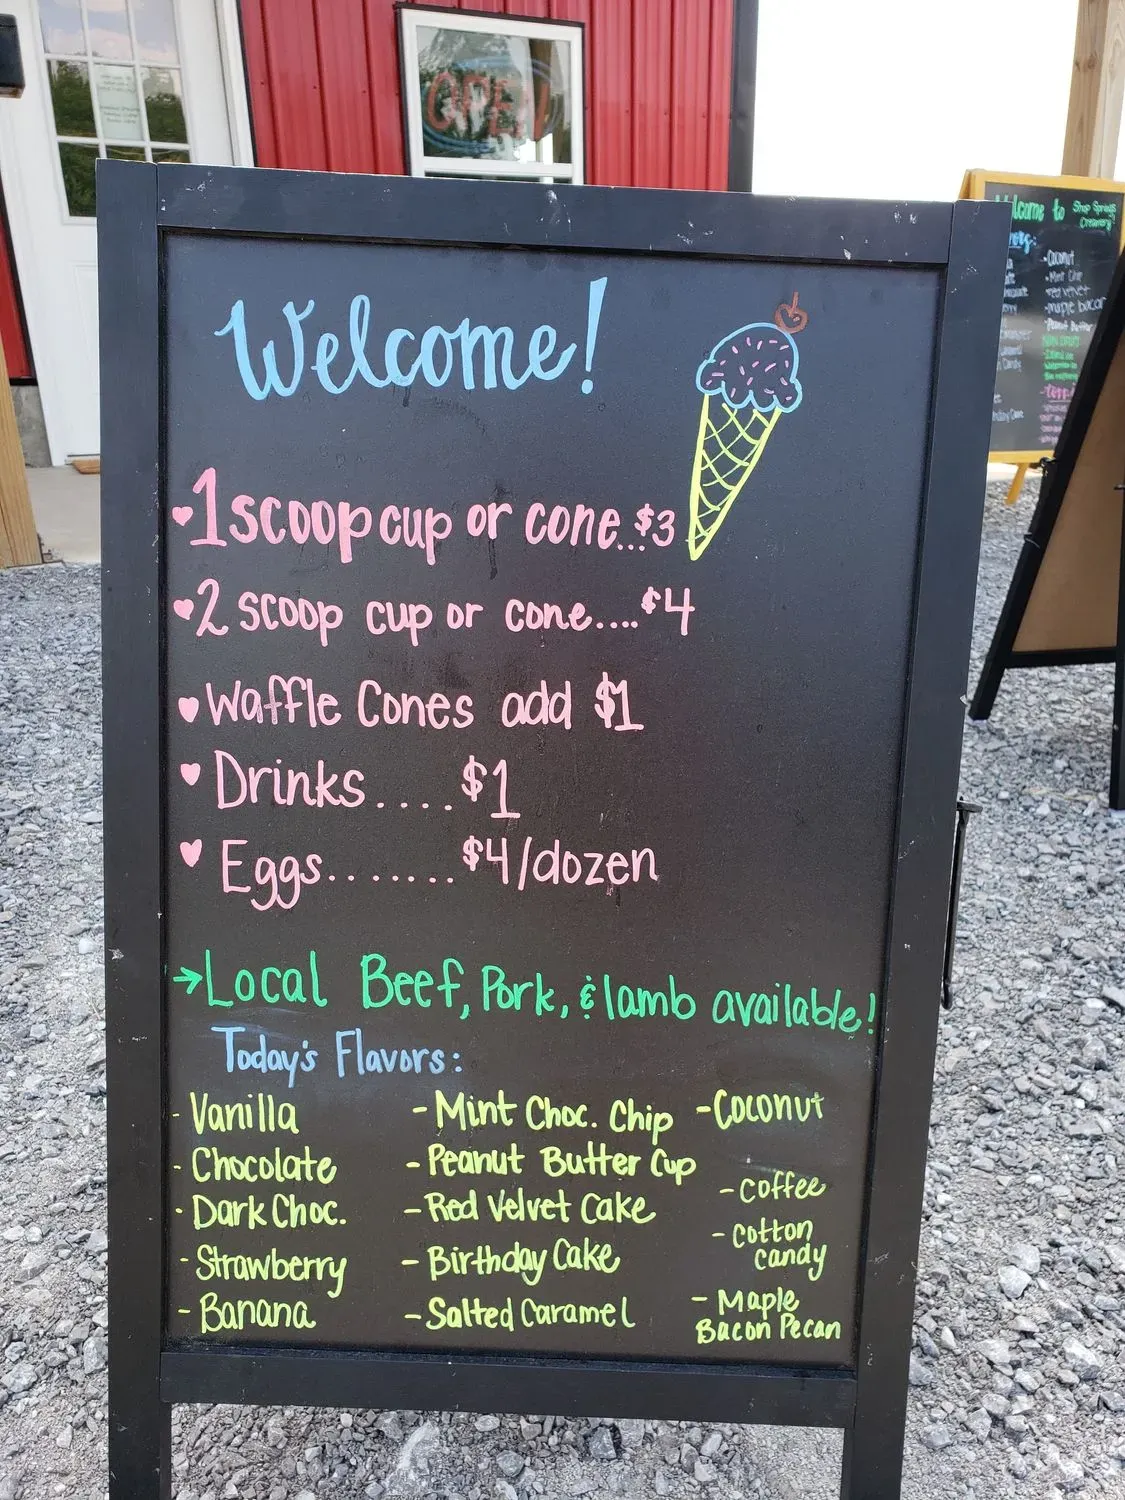 OPEN
Welcome!
1 scoop cup or cone...$3
2 scoop cup or cone....$4
Waffle Cones add $1
Drinks....$1
Eggs.......$4/dozen
→Local Beef, Pork, & lamb available!
Today's Flavors:
- Vanilla
- Chocolate
- Dark Choc.
- Strawberry
- Banana
- Mint Choc. Chip
- Peanut Butter Cup
- Red Velvet Cake
- Birthday Cake
- Salted Caramel
- Coconut
- coffee
- cotton
candy
- Maple
Bacon Pecan
lcome to
Shop Springs
Creamery
- Coconut
- Mint Chip
- red velvet
- maple bacon
- Peanut Butter